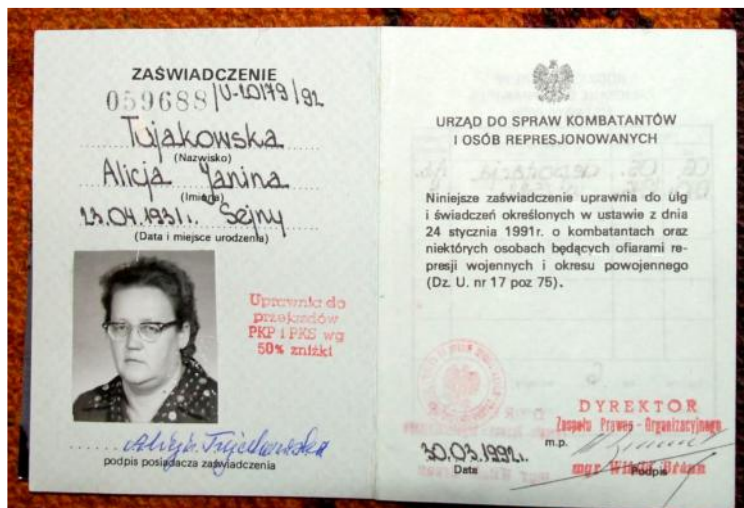 ZAŚWIADCZENIE
059688/U-20179/92
Tujakowska
(Nazwisko)
Alicja Janina
(Imiona)
23.04.1931r. Sejny
(Data i miejsce urodzenia)
Uprawnia do
przejazdów
PKP i PKS wg
50% zniżki
podpis posiadacza zaświadczenia
URZĄD DO SPRAW KOMBATANTÓW
I OSÓB REPRESJONOWANYCH
Niniejsze zaświadczenie uprawnia do ulg
i świadczeń określonych w ustawie z dnia
24 stycznia 1991r. o kombatantach oraz
niektórych osobach będących ofiarami re-
presji wojennych i okresu powojennego
(Dz. U. nr 17 poz 75).
DYREKTOR
Zespołu Prawno - Organizacyjnego
m.p.
30.03.1992r.
Data
mgr
Podpis